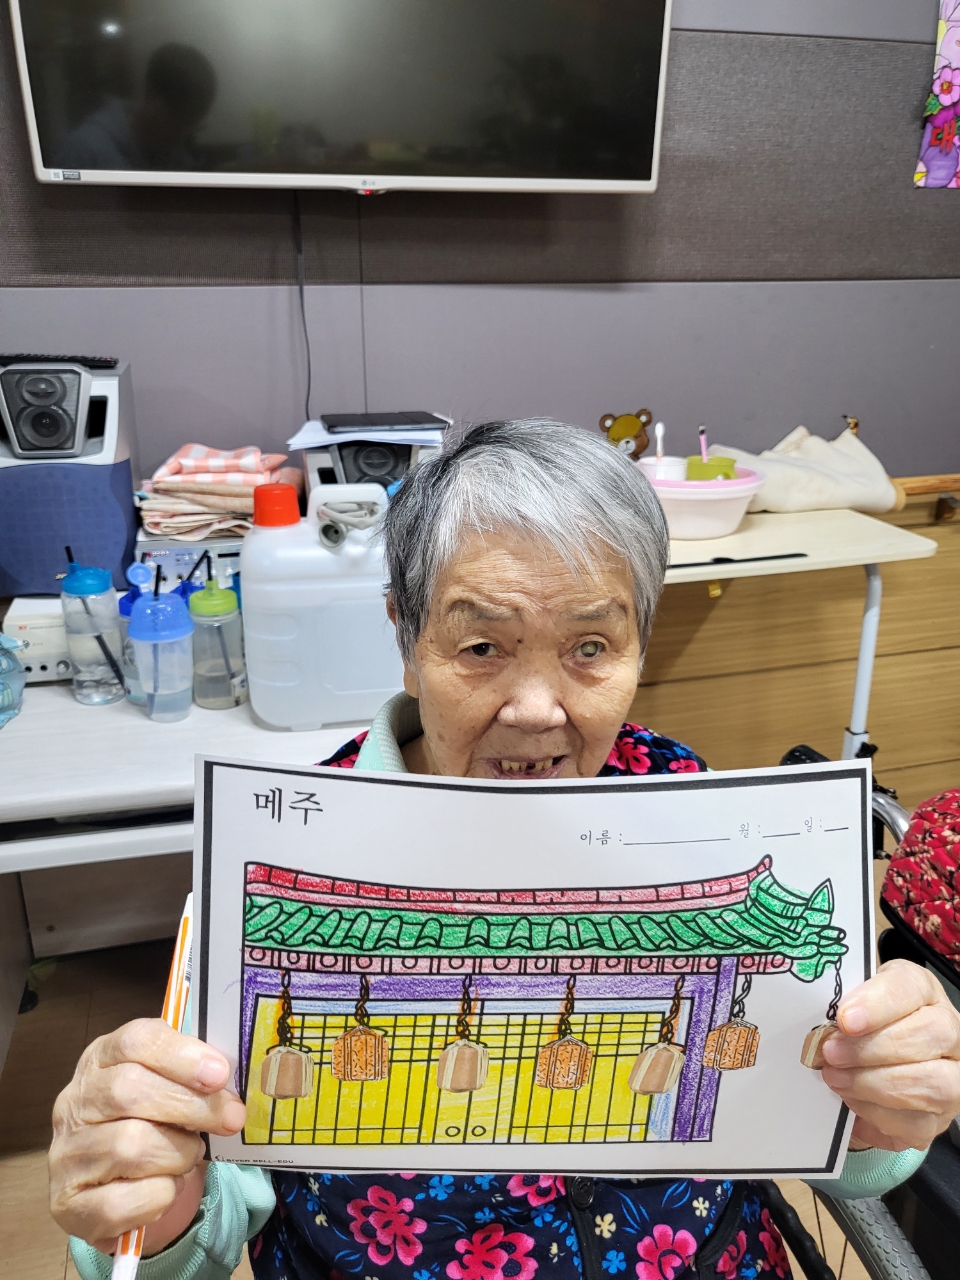 LG
대
메주
이름 : 월 : 일 :
SILVER WELL-EDU